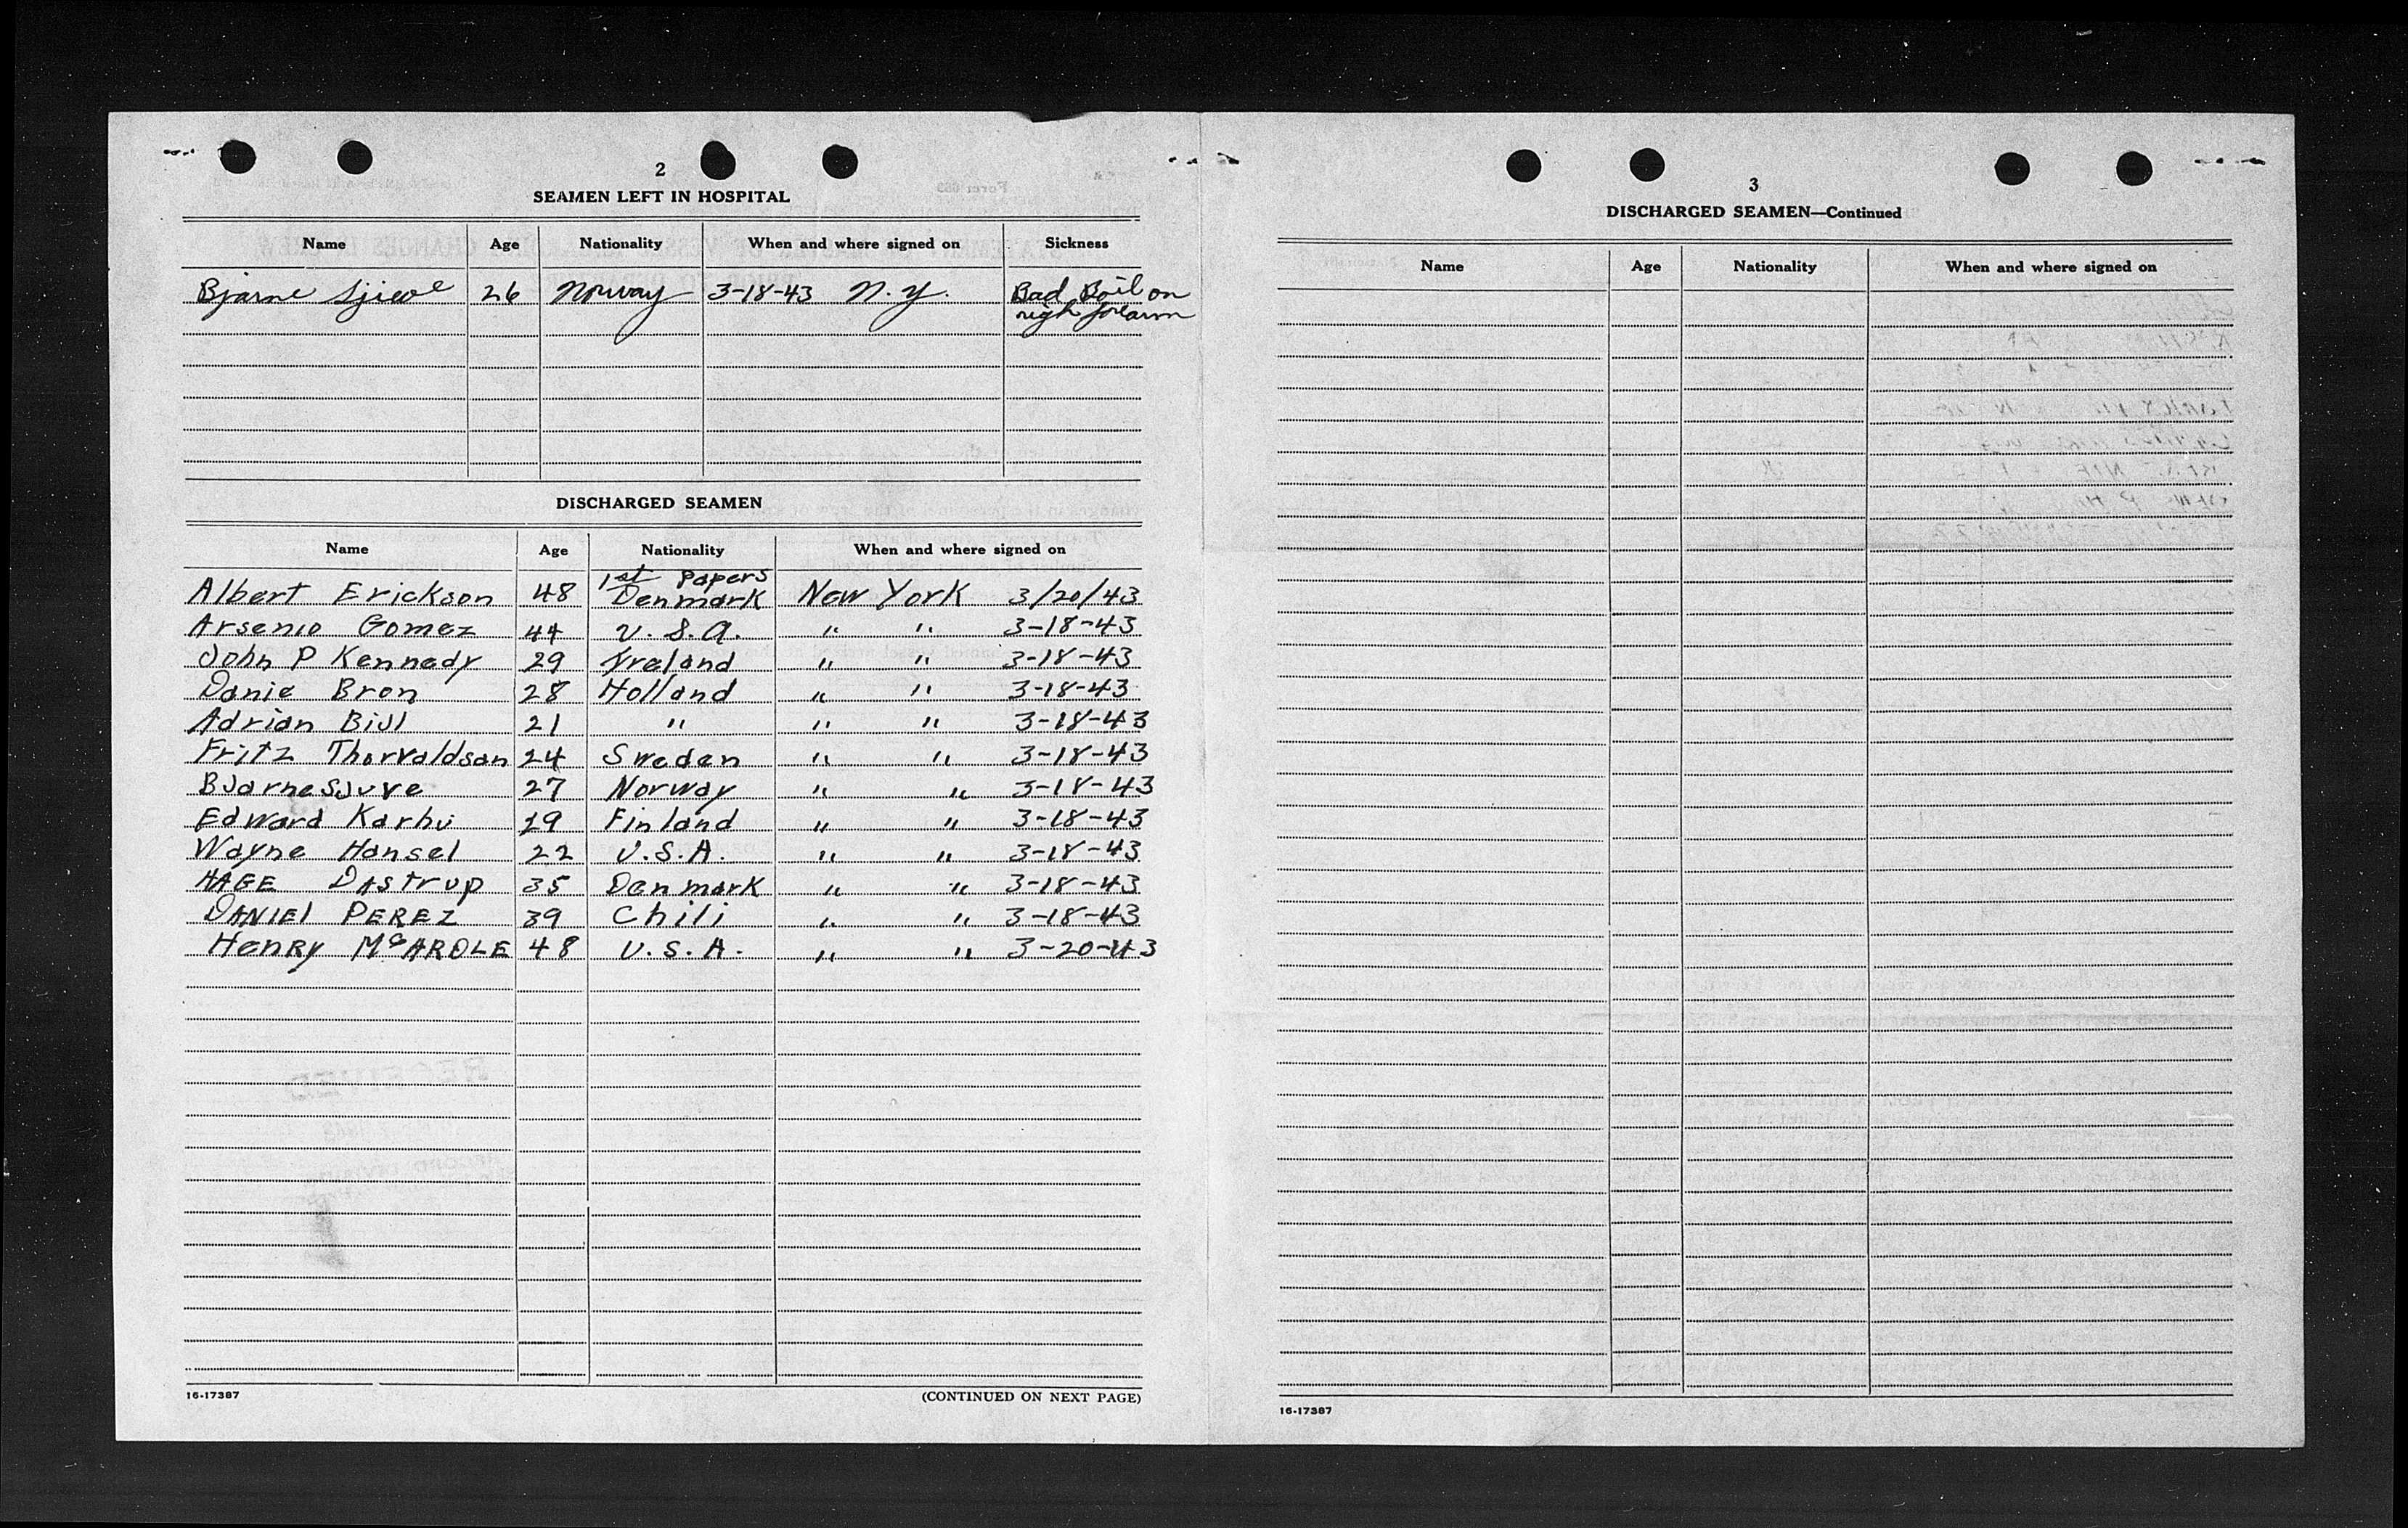 2
SEAMEN LEFT IN HOSPITAL
Name Age Nationality When and where signed on Sickness
Bjarne 26 Norway 3-18-43 N.Y. Bad Boil on
righ forearm
DISCHARGED SEAMEN
Name Age Nationality When and where signed on
1st Papers
Albert Erickson 48 Denmark New York 3/20/43
Arsenio Gomez 44 U.S.A. " " 3-18-43
John P Kennedy 29 Ireland " " 3-18-43
Danie Bron 28 Holland " " 3-18-43
Adrian Bijl 21 " " " 3-18-43
Fritz Thorvaldsan 24 Sweden " " 3-18-43
Bjarne Sjuve 27 Norway " " 3-18-43
Edward Karhu 29 Finland " " 3-18-43
Wayne Hansel 22 U.S.A. " " 3-18-43
HAGE DAstrup 35 Denmark " " 3-18-43
DANIEl PEREZ 39 Chili " " 3-18-43
HenRy McARDLE 48 U.S.A. " " 3-20-43
16-17387
(CONTINUED ON NEXT PAGE)
3
DISCHARGED SEAMEN—Continued
Name Age Nationality When and where signed on
16-17387